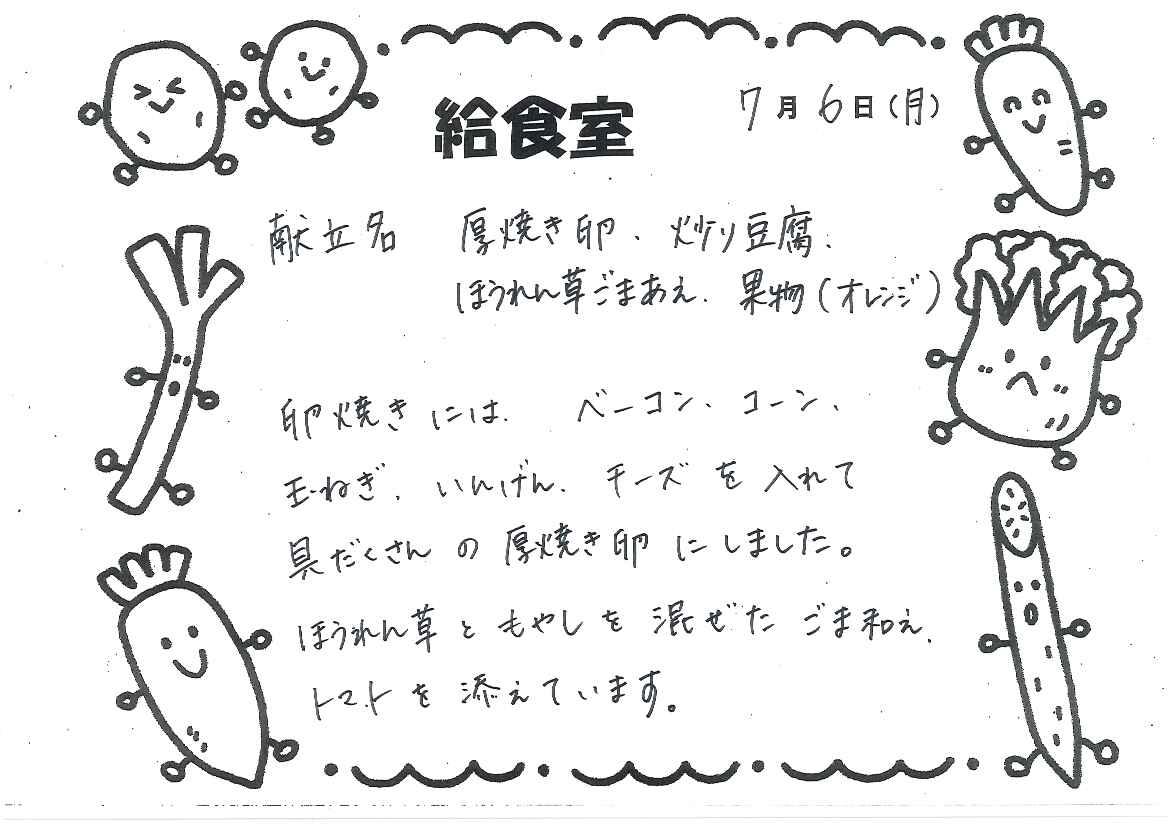 給食室
7月6日(月)
献立名 厚焼き卵、炒り豆腐、
ほうれん草ごまあえ、果物(オレンジ)
卵焼きには、ベーコン、コーン、
玉ねぎ、いんげん、チーズを入れて
具だくさんの厚焼き卵にしました。
ほうれん草ともやしを混ぜたごま和え、
トマトを添えています。